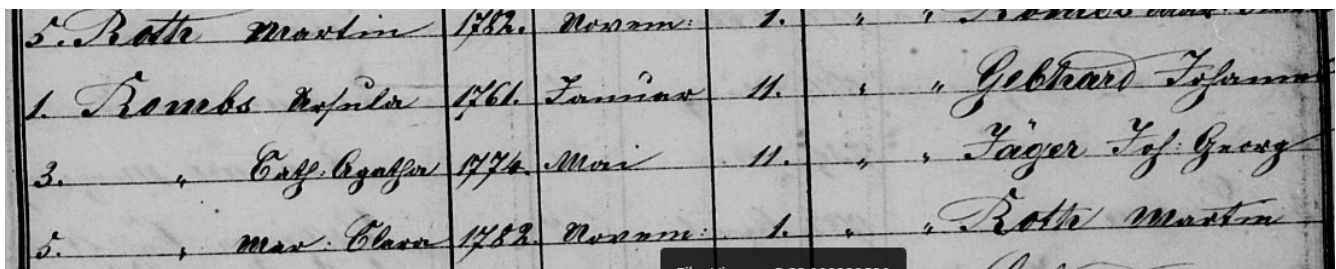 5. Roth Martin 1782. Novem: 1. " " Rombs Mar:
1. Rombs Ursula 1761. Januar 11. " " Gebhard Johannes
3. " Cath: Agatha 1774. Mai 11. " " Jäger Joh: Georg
5. " Mar: Clara 1782. Novem: 1. " " Roth Martin